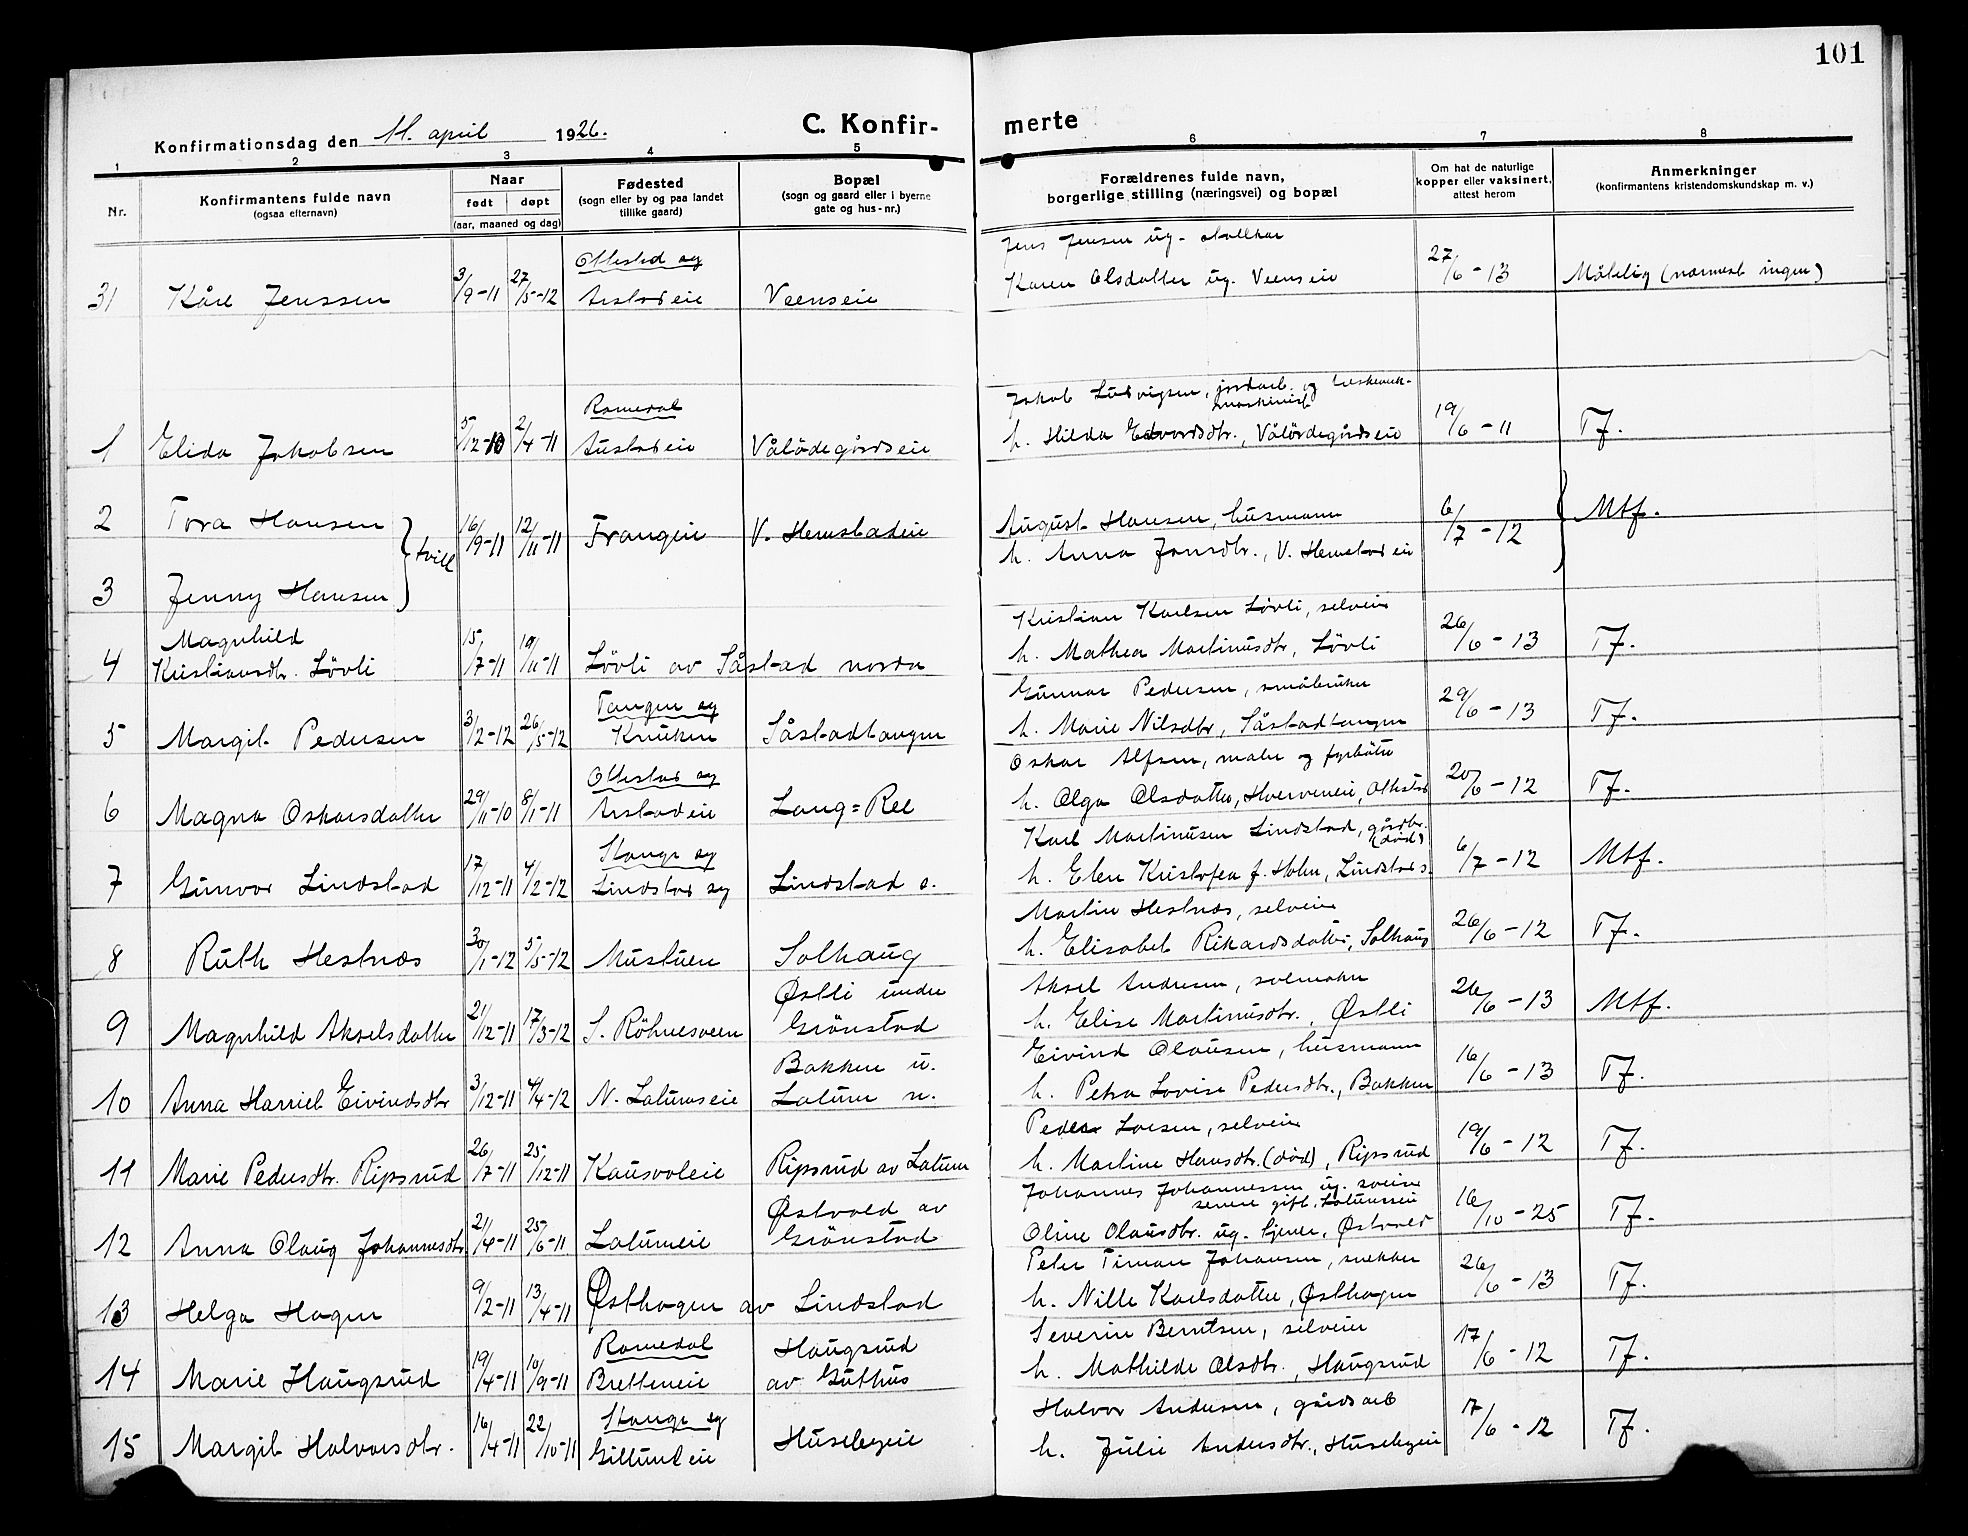 101
Konfirmationsdag den 11. april 1926.
C. Konfir-
merte
1 2 3 4 5 6 7 8
Nr.
Konfirmantens fulde navn
(ogsaa efternavn)
Naar
født døpt
(aar, maaned og dag)
Fødested
(sogn eller by og paa landet
tillike gaard)
Bopæl
(sogn og gaard eller i byerne
gate og hus-nr.)
Forældrenes fulde navn,
borgerlige stilling (næringsvei) og bopæl
Om hat de naturlige
kopper eller vaksinert,
attest herom
Anmerkninger
(konfirmantens kristendomskundskap m. v.)
Ottestad sg Jens Jensen ug.
31 Kåre Jenssen 3/9-11 27/5-12 Arstadeie Veenseie Karen Olsdatter ug. Veenseie 27/6-13 Måtelig (nærmest ingen)
Romedal Jakob Ludvigsen, jordarb. og
maskinist
1 Elida Jakobsen 5/12-10 2/4-11 Austadeie Vålödegårdseie h. Hilda Edvardsdtr., Vålördegårdseie 19/6-11 Tf.
2 Tora Hansen August Hansen, husmann Mtf.
tvill 16/9-11 12/11-11 Frangeie V. Hemstadeie h. Anna Jonsdtr., V. Hemstadeie 6/7-12
3 Jenny Hansen
Magnhild Kristian Karlsen Lövli, selveier
4 Kristiansdtr. Lövli 15/7-11 19/11-11 Lövli av Såstad nordre h. Mathea Martinusdtr, Lövli 26/6-13 Tf.
Tangen sg Gunnar Pedersen, småbruker
5 Margit Pedersen 3/2-12 26/5-12 Knuken Såstadtangen h. Marie Nilsdtr, Såstadtangen 29/6-13 Tf.
Ottestad sg Oskar Alfsen, maler og fyrbøter
6 Magna Oskarsdatter 29/11-10 8/1-11 Arstadeie Lang=Ree h. Olga Olsdatter, Hverveneie, Ottestad 20/6-12 Tf.
Stange sg Karl Martinusen Lindstad, gårdbr.
(död)
7 Gunvor Lindstad 17/12-11 4/2-12 Lindstad sg Lindstad s. h. Elen Kristofea f. Holm, Lindstad s. 6/7-12 Mtf.
Martin Hestnæs, selveier
8 Ruth Hestnæs 30/1-12 5/5-12 Mustuen Solhaug h. Elisabet Rikardsdatter, Solhaug 26/6-12 Tf.
Østli under Aksel Andersen, salmaker
9 Magnhild Akselsdatter 21/12-11 17/3-12 S. Röhnesveen Grönstad h. Elise Martinusdtr., Østli 26/6-13 Mtf.
Bakken u. Eivind Olausen, husmann
10 Anna Harriet Eivindsdtr 3/12-11 4/4-12 N. Latumseie Latum n. h. Petra Lovise Pedersdtr., Bakken 16/6-13 Tf.
Peder Larsen, selveier
11 Marie Pedersdtr. Ripsrud 26/7-11 25/12-11 Kausvoleie Ripsrud av Latum h. Martine Hansdtr. (död), Ripsrud 19/6-12 Tf.
Østvold av Johannes Johannessen ug. sveiser
senere gift. Latumseie
12 Anna Olaug Johannesdtr. 21/4-11 25/6-11 Latumeie Grönstad Oline Olausdtr. ug. tjener, Østvold 16/10-25 Tf.
Peter Timan Johansen, snekker
13 Helga Hagen 9/2-11 13/4-11 Østhagen av Lindstad h. Nille Karlsdatter, Østhagen 26/6-13 Tf.
Romedal Haugsrud Severin Berntsen, selveier
14 Marie Haugsrud 19/4-11 10/9-11 Bretteneie av Guthus h. Mathilde Olsdtr., Haugsrud 17/6-12 Tf.
Stange sg Halvor Andersen, gårdsarb
15 Margit Halvorsdtr. 16/4-11 22/10-11 Gillundeie Husebyeie h. Julie Andersdtr., Husebyeie 17/6-12 Tf.